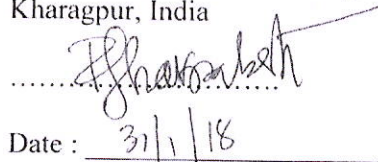 Kharagpur, India
Date : 31/1/18